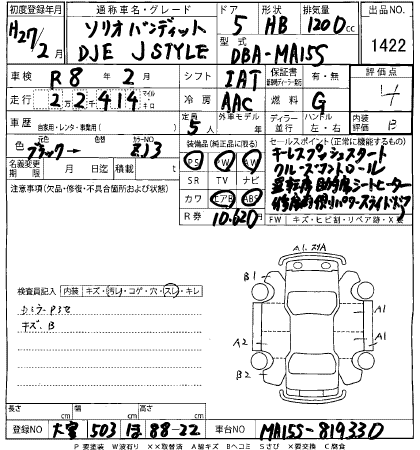 初度登録年月 通称車名・グレード ドア 形状 排気量 出品NO
H27/2月 ソリオバンディット 5 HB 1200cc 1422
DJE J STYLE 型式 DBA-MA15S
車検 R8年2月 シフト IAT 保証書 有・無 評価点 4
走行 22414 マイル キロ 冷房 AAC 燃料 G
車歴 自家用・レンタ・事業用( ) 定員 5人 外車年モデル ディーラー 並行 ハンドル 左・右 内装評価 B
元色 ブラック→ 色替 カラーNO ZJ3 装備品(純正品に限る) セールスポイント(正常に機能するもの)
PS PW AW キーレスプッシュスタート
名義変更期限 月 日迄 積載 t SR TV ナビ クルーズコントロール
注意事項(欠品・修復・不具合箇所および状態) カワ エアB ABS 運転席助手席シートヒーター
R券 10.620 パワースライドドア
FW キズ・ヒビ割・リペア跡・X要
A1.スリA
B1
A1
A2
A1
B2
検査員記入 内装 キズ・汚れ・コゲ・穴・スレ・キレ
キズ、B
長さ cm 幅 cm 高さ cm
登録NO 大宮 503 ほ 88-22 車台NO MA15S-819330
P要塗装 W波有り ××取替済 A線キズ Bヘコミ Sさび X要交換 C腐食